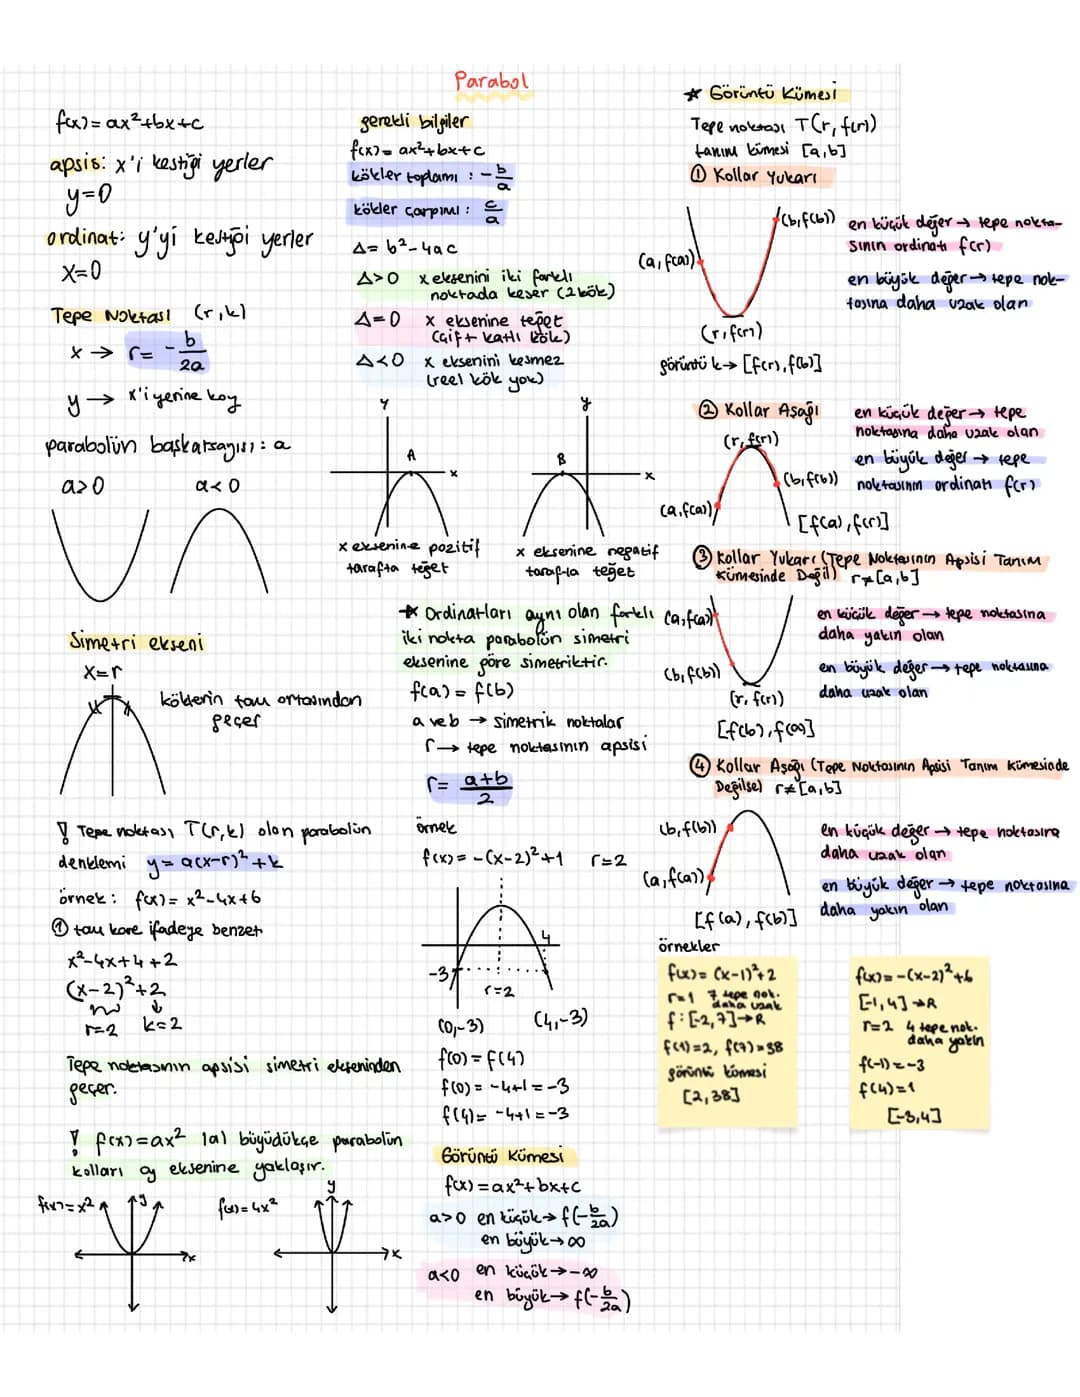 Parabol
f(x) = ax²+bx+c
apsis: x'i kestiği yerler
y=0
ordinat: y'yi kestiği yerler
x=0
Tepe Noktası (r,k)
x → r = -b/2a
y → x'i yerine koy
parabolün başkatsayısı: a
a>0 a<0
Simetri ekseni
x=r
köklerin tam ortasından
geçer
! Tepe noktası T(r,k) olan parabolün
denklemi y = a(x-r)²+k
örnek: f(x) = x²-4x+6
① tam kare ifadeye benzet
x²-4x+4+2
(x-2)²+2
r=2 k=2
Tepe noktasının apsisi simetri ekseninden
geçer.
! f(x)=ax² |a| büyüdükçe parabolün
kolları y eksenine yaklaşır.
f(x)=x² y x
f(x)=4x² y x
gerekli bilgiler
f(x) = ax²+bx+c
kökler toplamı : -b/a
kökler çarpımı : c/a
Δ= b²-4ac
Δ>0 x eksenini iki farklı
noktada keser (2 kök)
Δ=0 x eksenine teğet
(çift katlı kök)
Δ<0 x eksenini kesmez
(reel kök yok)
y A x
y B x
x eksenine pozitif
tarafta teğet
x eksenine negatif
tarafta teğet
★ Ordinatları aynı olan farklı
iki nokta parabolün simetri
eksenine göre simetriktir.
f(a) = f(b)
a ve b → simetrik noktalar
r → tepe noktasının apsisi
r = a+b/2
örnek
f(x) = -(x-2)²+1 r=2
4
-3
r=2
(0,-3) (4,-3)
f(0) = f(4)
f(0) = -4+1 = -3
f(4) = -4+1 = -3
Görüntü Kümesi
f(x) = ax²+bx+c
a>0 en küçük → f(-b/2a)
en büyük → ∞
a<0 en küçük → -∞
en büyük → f(-b/2a)
★ Görüntü Kümesi
Tepe noktası T(r, f(r))
tanım kümesi [a,b]
① Kollar Yukarı
(b,f(b))
(a,f(a))
(r,f(r))
görüntü k → [f(r), f(b)]
en küçük değer → tepe nokta-
sının ordinatı f(r)
en büyük değer → tepe nok-
tasına daha uzak olan
② Kollar Aşağı
(r,f(r))
(b,f(b))
(a,f(a))
[f(a), f(r)]
en küçük değer → tepe
noktasına daha uzak olan
en büyük değer → tepe
noktasının ordinatı f(r)
③ Kollar Yukarı (Tepe Noktasının Apsisi Tanım
Kümesinde Değil) r≠[a,b]
(a,f(a))
(b,f(b))
(r, f(r))
[f(b), f(a)]
en küçük değer → tepe noktasına
daha yakın olan
en büyük değer → tepe noktasına
daha uzak olan
④ Kollar Aşağı (Tepe Noktasının Apsisi Tanım Kümesinde
Değilse) r≠[a,b]
(b,f(b))
(a,f(a))
[f(a), f(b)]
en küçük değer → tepe noktasına
daha uzak olan
en büyük değer → tepe noktasına
daha yakın olan
örnekler
f(x) = (x-1)²+2
r=1 7 tepe nok.
daha uzak
f:[-2,7]→R
f(1)=2, f(7)=38
görüntü kümesi
[2,38]
f(x) = -(x-2)²+6
[-1,4]→R
r=2 4 tepe nok.
daha yakın
f(-1) = -3
f(4)=1
[-3,4]